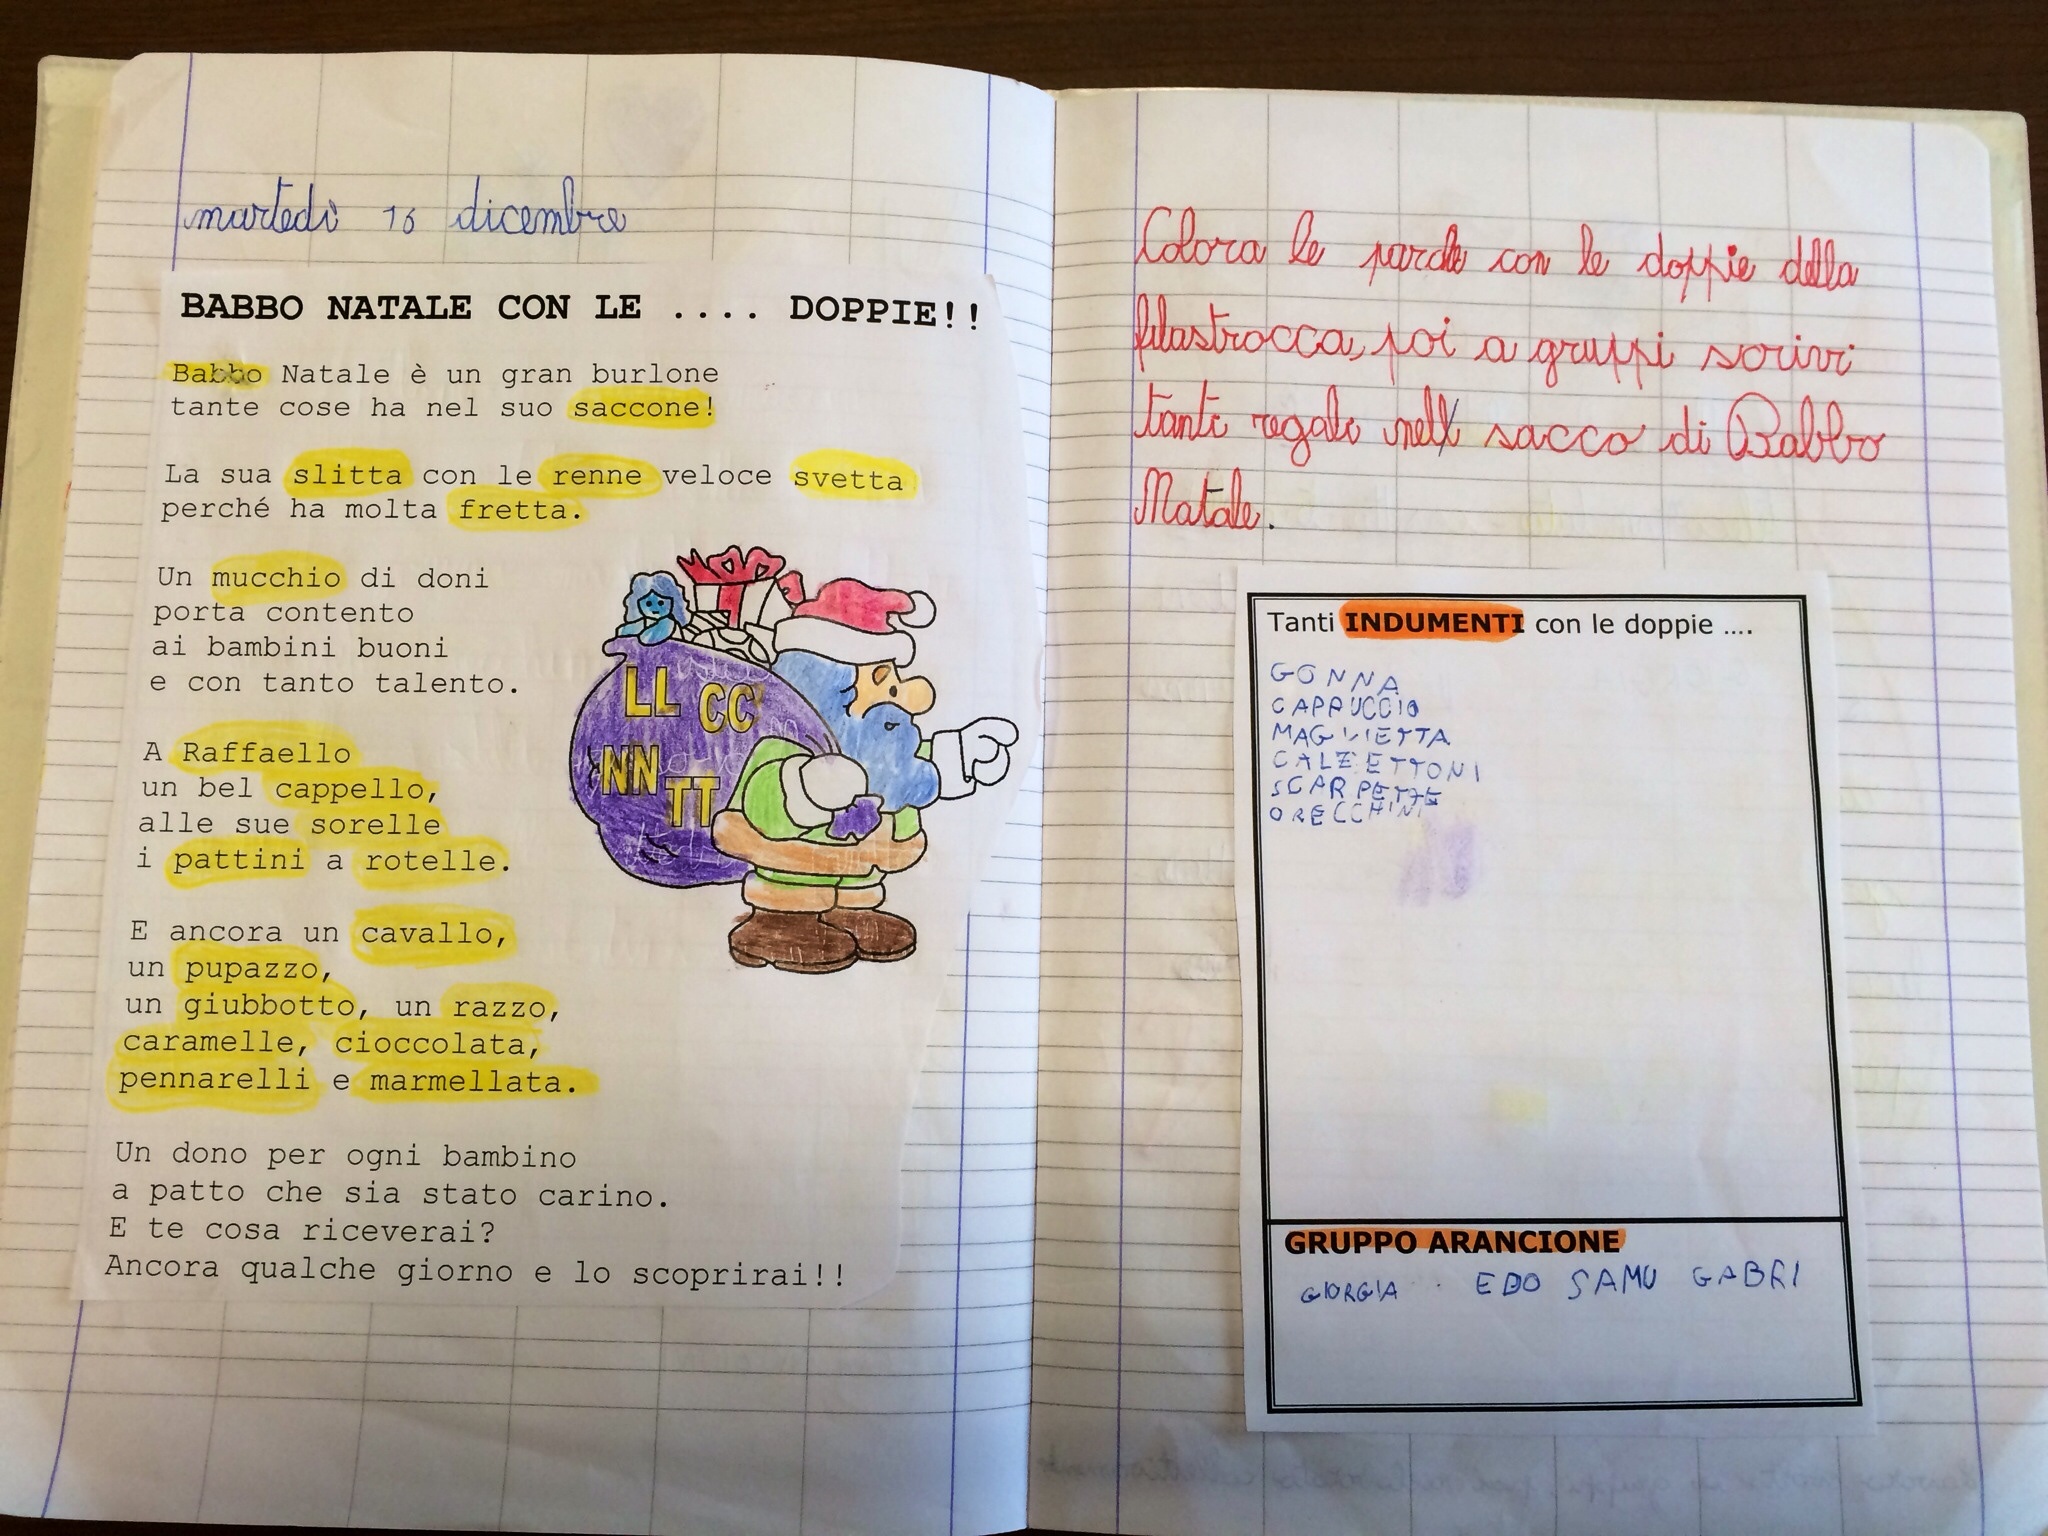 martedì 16 dicembre
BABBO NATALE CON LE .... DOPPIE!!
Babbo Natale è un gran burlone
tante cose ha nel suo saccone!
La sua slitta con le renne veloce svetta
perché ha molta fretta.
Un mucchio di doni
porta contento
ai bambini buoni
e con tanto talento.
A Raffaello
un bel cappello,
alle sue sorelle
i pattini a rotelle.
E ancora un cavallo,
un pupazzo,
un giubbotto, un razzo,
caramelle, cioccolata,
pennarelli e marmellata.
Un dono per ogni bambino
a patto che sia stato carino.
E te cosa riceverai?
Ancora qualche giorno e lo scoprirai!!
LL CC
NN TT
Colora le parole con le doppie della
filastrocca, poi a gruppi scrivi
tanti regali nel sacco di Babbo
Natale.
Tanti INDUMENTI con le doppie ....
GONNA
CAPPUCCIO
MAGLIETTA
CALZETTONI
SCARPETTE
ORECCHINI
GRUPPO ARANCIONE
GIORGIA EDO SAMU GABRI